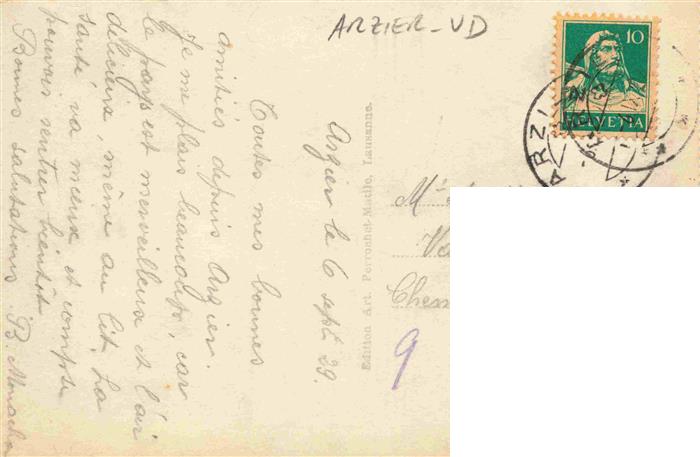 ARZIER - VD
10
HELVETIA
ARZI
Arzier le 6 sept 29.
Toutes mes bonnes
amitiés depuis Arzier.
Je me plais beaucoup, car
le pays est merveilleux et l'air
délicieux, même au lit. La
santé va mieux et compte
pouvoir rentrer bientôt
Bonnes salutations B.
Edition Art. Perrochet-Matile, Lausanne.
M
Ve
Chem
9